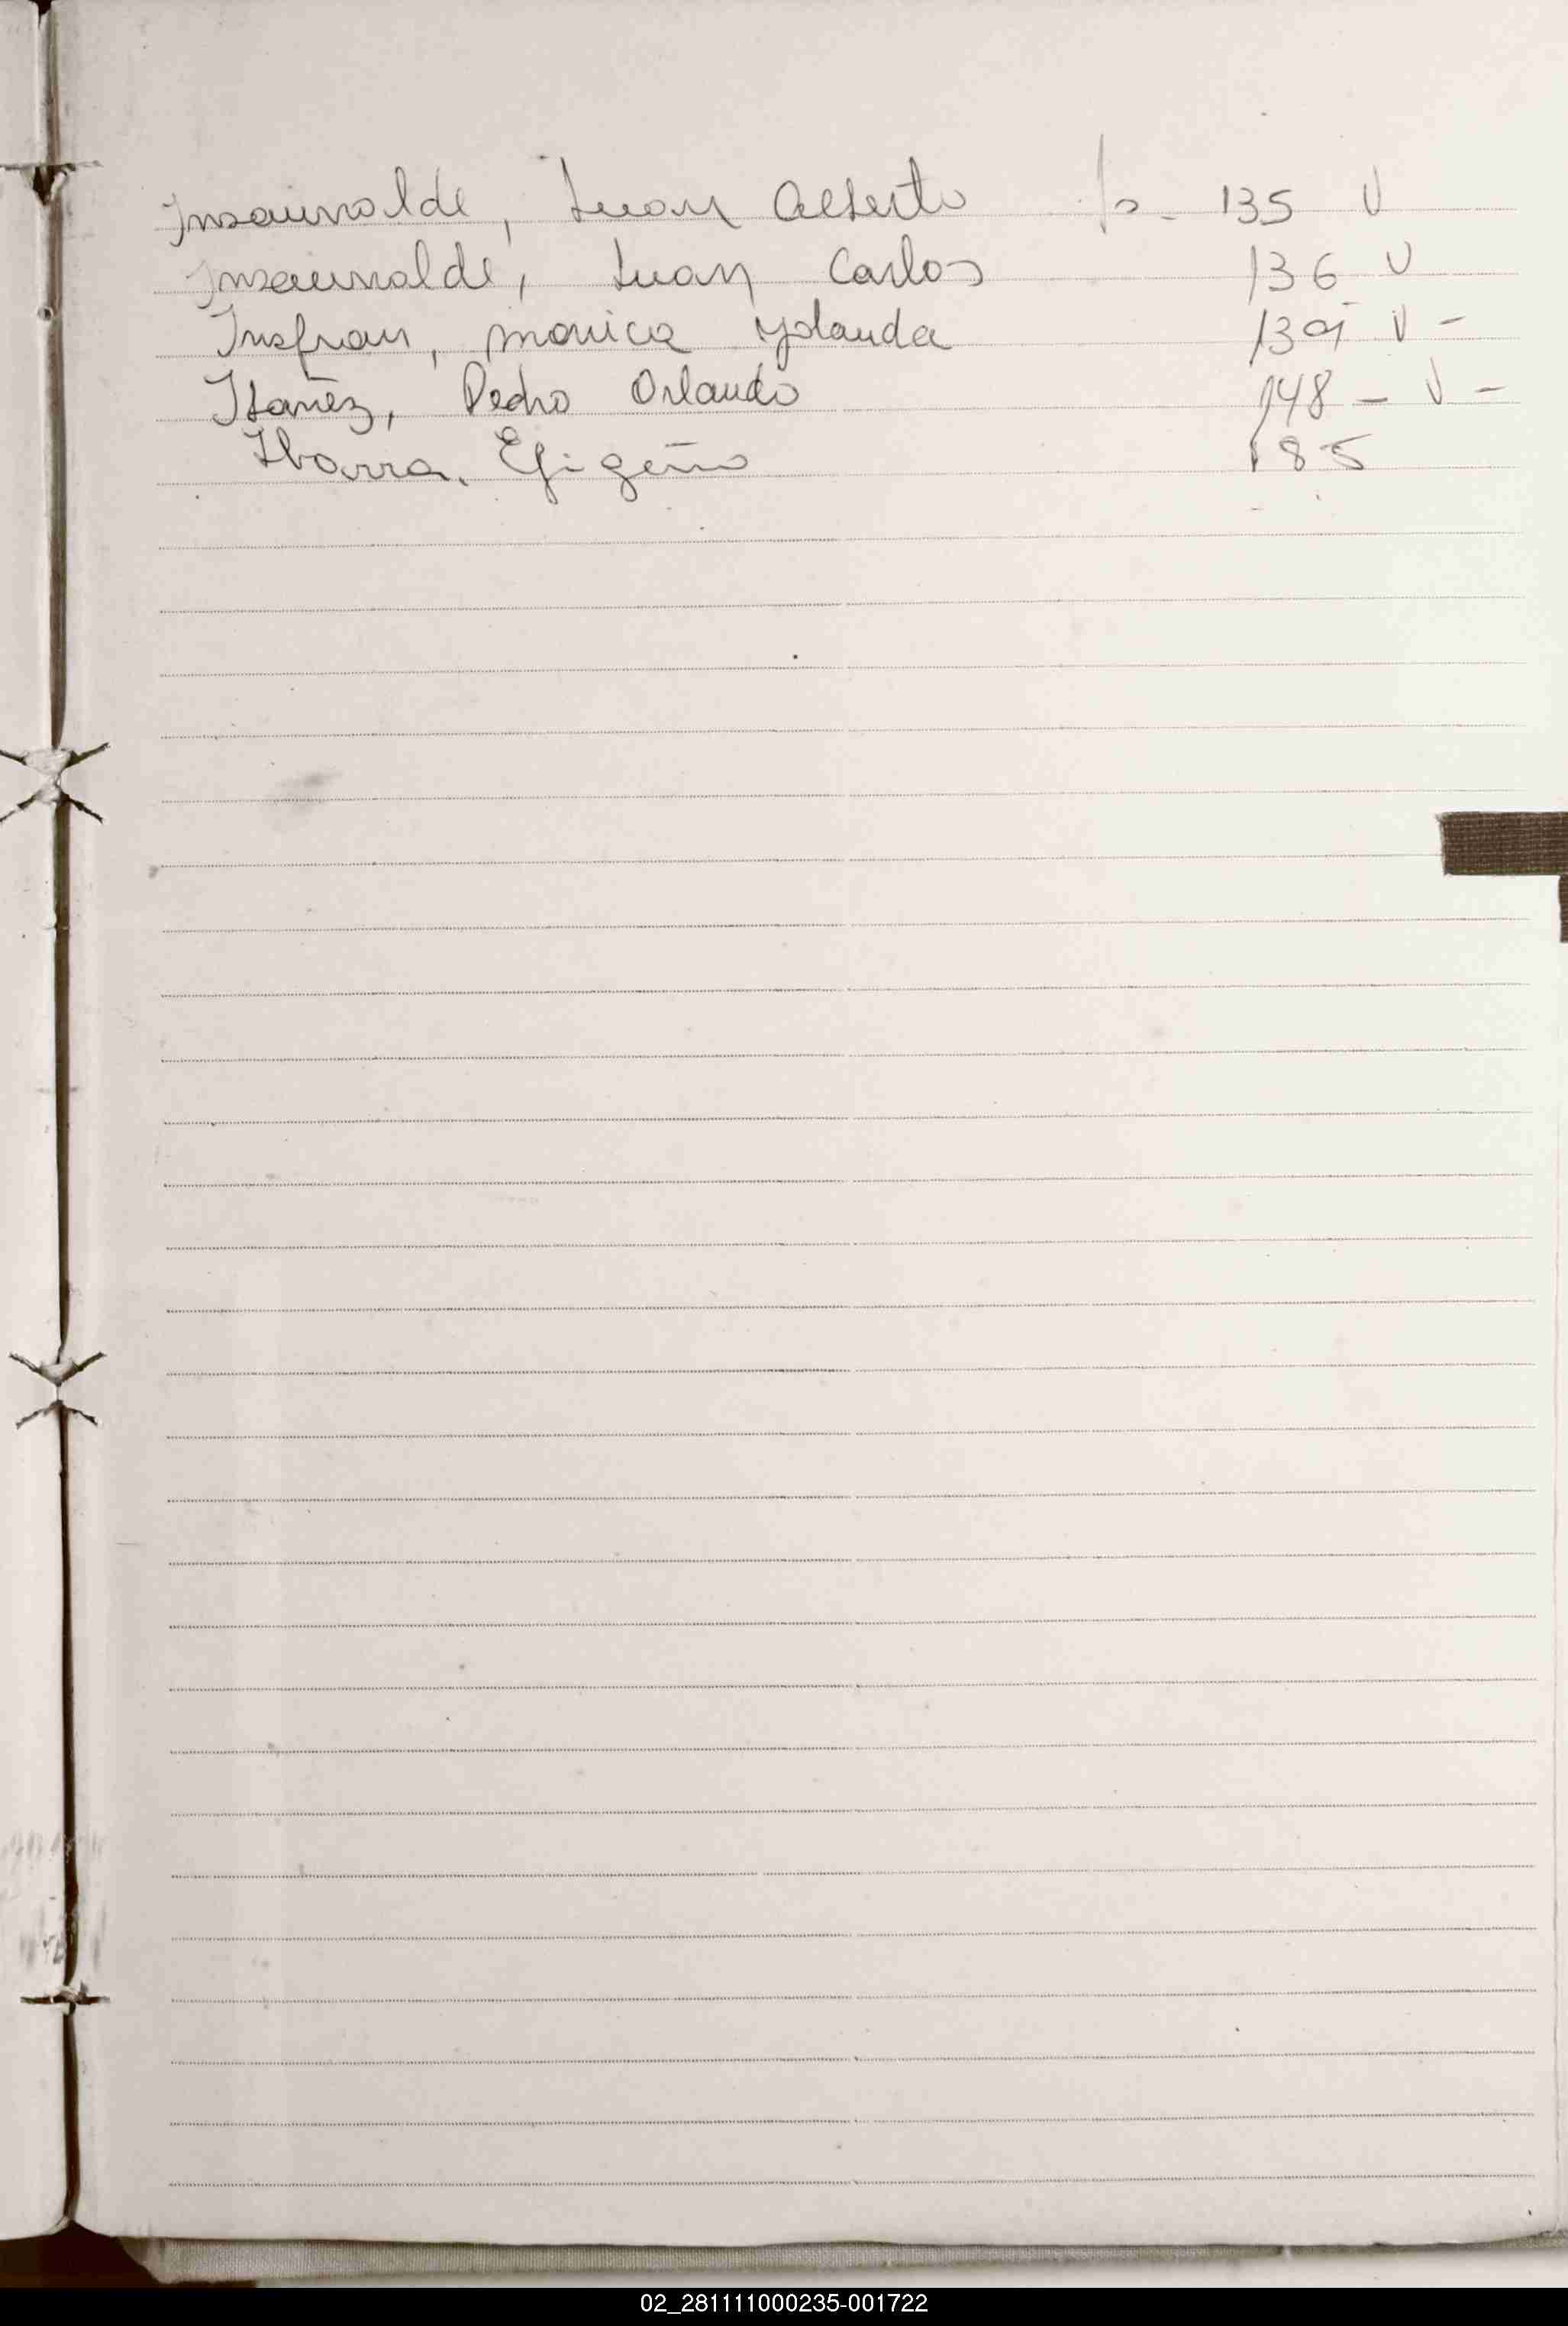 Insaurralde, Juan Alberto fo. 135 V
Insaurralde, Juan Carlos 136 V
Insfran, monica Yolanda 139 V -
Ibañez, Pedro Orlando 148 - V -
Ibarra, Efigenio 185
02_281111000235-001722